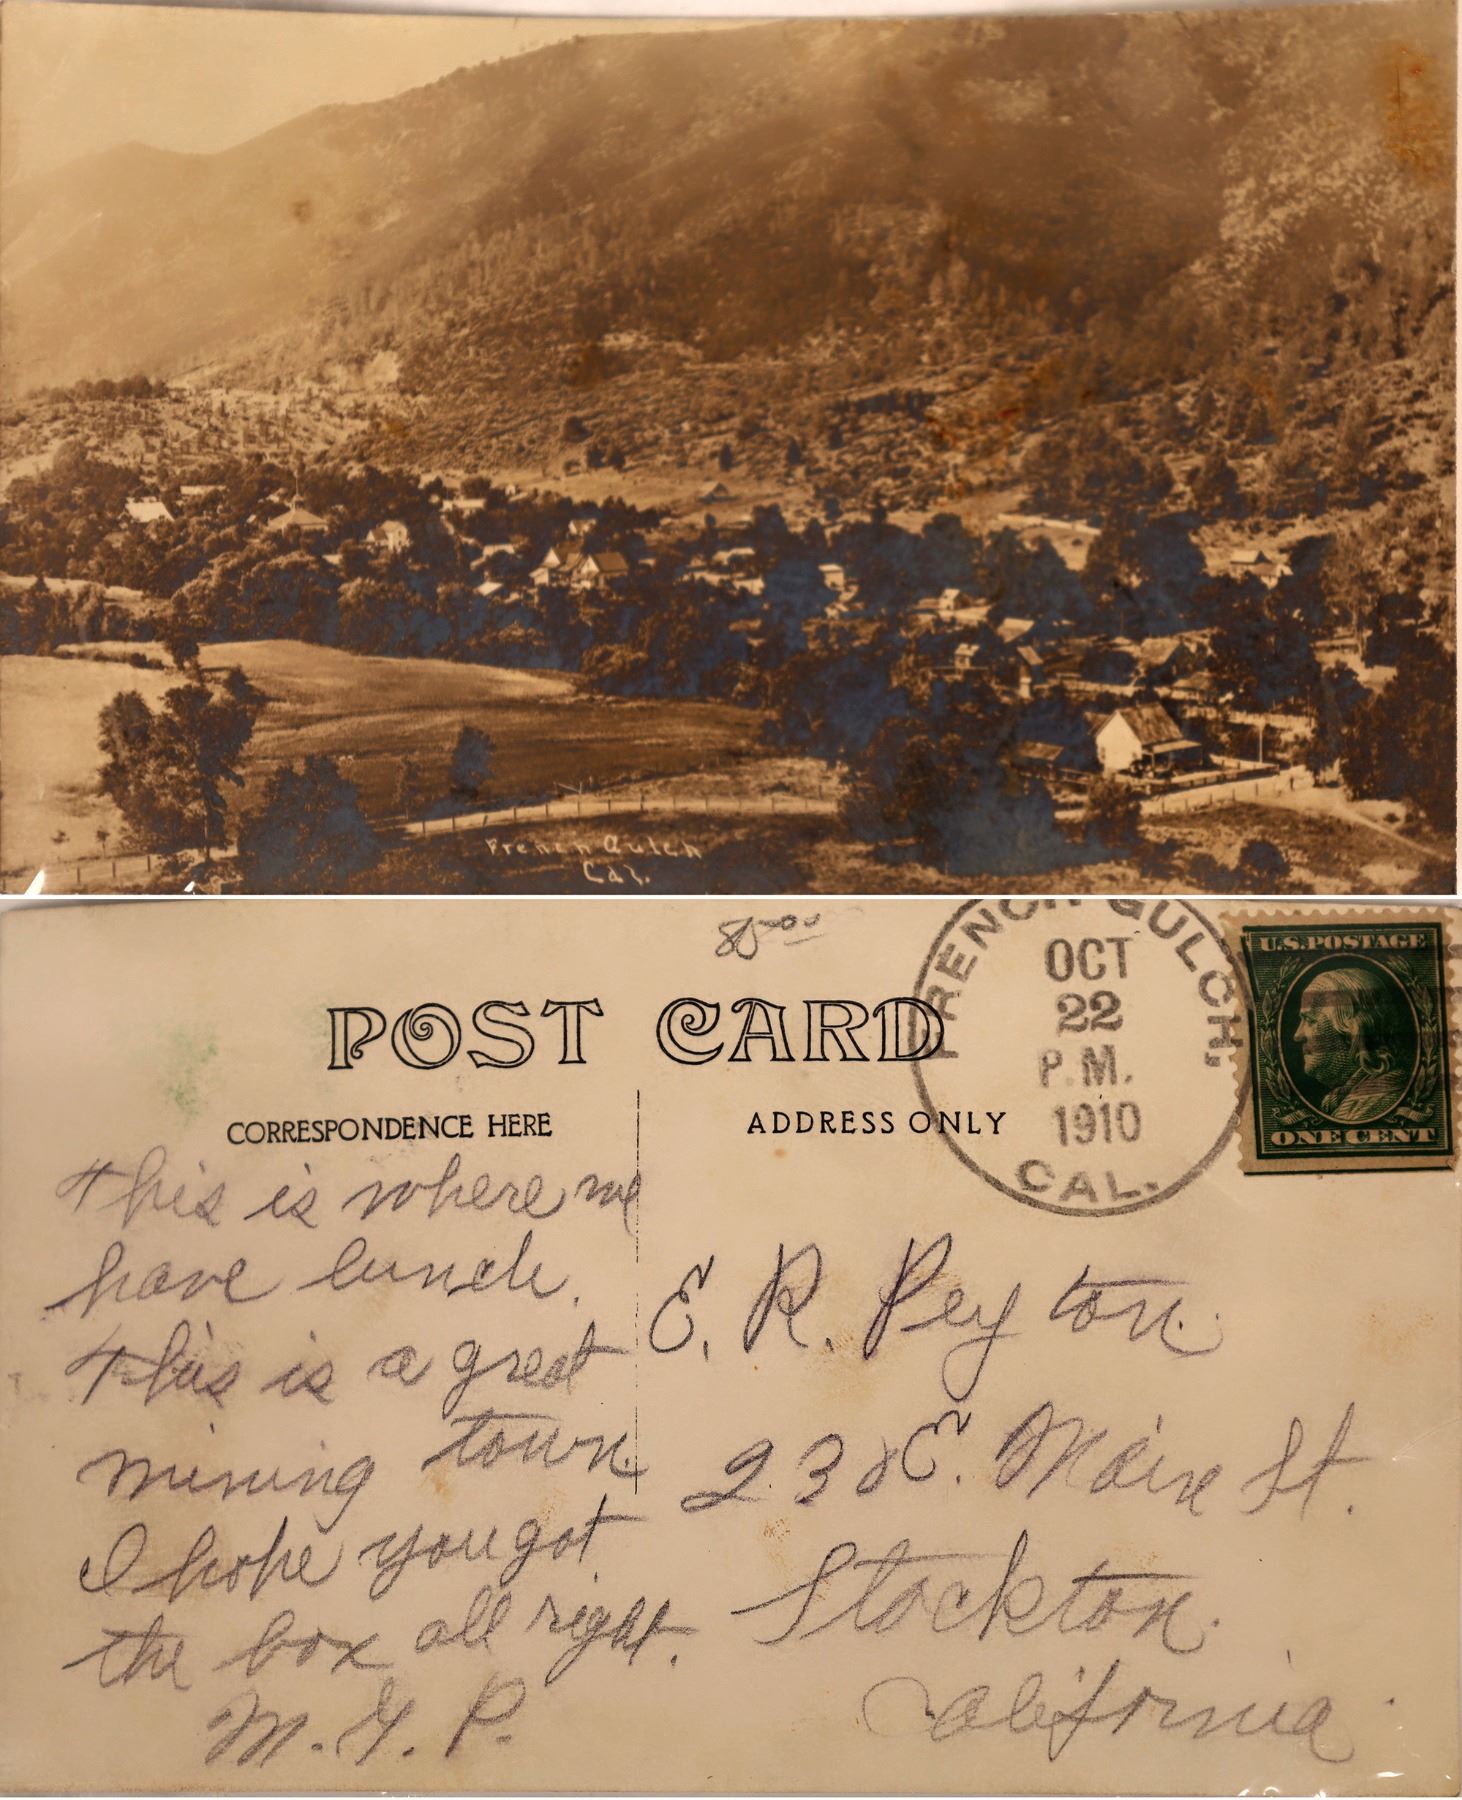 French Gulch
Cal.
85.00
POST CARD
CORRESPONDENCE HERE
ADDRESS ONLY
FRENCH GULCH,
OCT
22
P.M.
1910
CAL.
U.S. POSTAGE
ONE CENT
This is where we
have lunch.
This is a great
mining town.
I hope you got
the box all right.
M. Y. P.
E. R. Peyton.
238 E. Main St.
Stockton.
California.